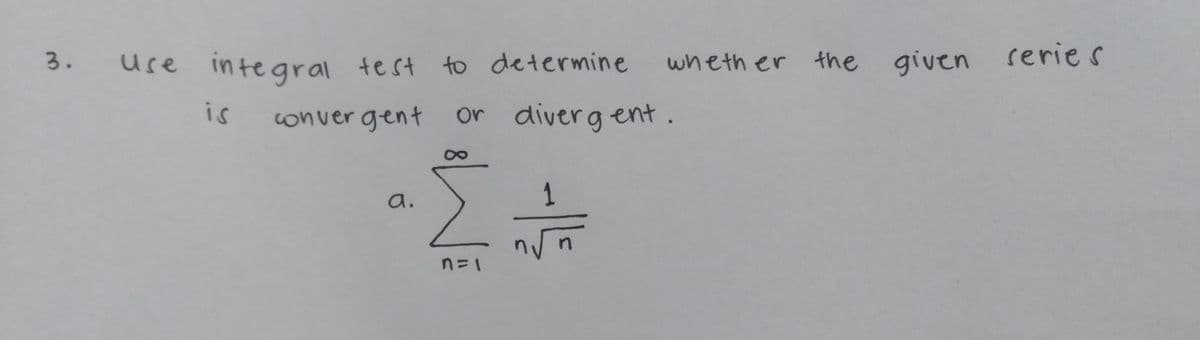 3. Use integral test to determine whether the given series
is convergent or divergent.
a. ∞ Σ n=1 1/(n√n)